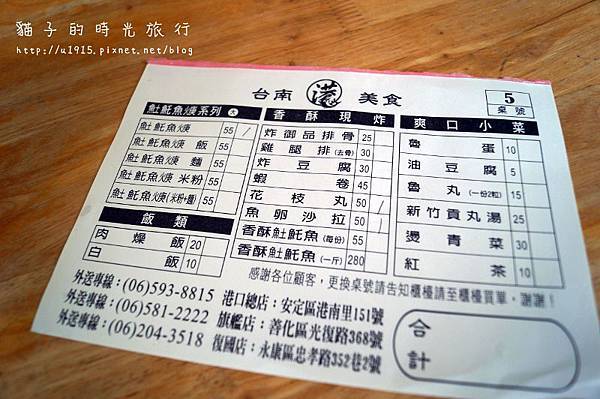 貓子的時光旅行
http://u1915.pixnet.net/blog
台南 港 美食
5
桌號
魠魠魚焿系列 大
魠魠魚焿 55 /
魠魠魚焿 飯 55
魠魠魚焿 麵 55
魠魠魚焿 米粉 55
魠魠魚焿(米粉+麵) 55
飯類
肉燥飯 20
白飯 10
香酥現炸
炸御品排骨 25
雞腿排(去骨) 30
炸豆腐 30
蝦卷 45
花枝丸 50 /
魚卵沙拉 50 /
香酥魠魠魚(每份) 55
香酥魠魠魚(一斤) 280
爽口小菜
魯蛋 10
油豆腐 5
魯丸(一份2粒) 15
新竹貢丸湯 25
燙青菜 30
紅茶 10
感謝各位顧客，更換桌號請告知櫃檯請至櫃檯買單。謝謝！
外送專線：(06)593-8815 港口總店：安定區港南里151號
外送專線：(06)581-2222 旗艦店：善化區光復路368號
外送專線：(06)204-3518 復國店：永康區忠孝路352巷2號
合計